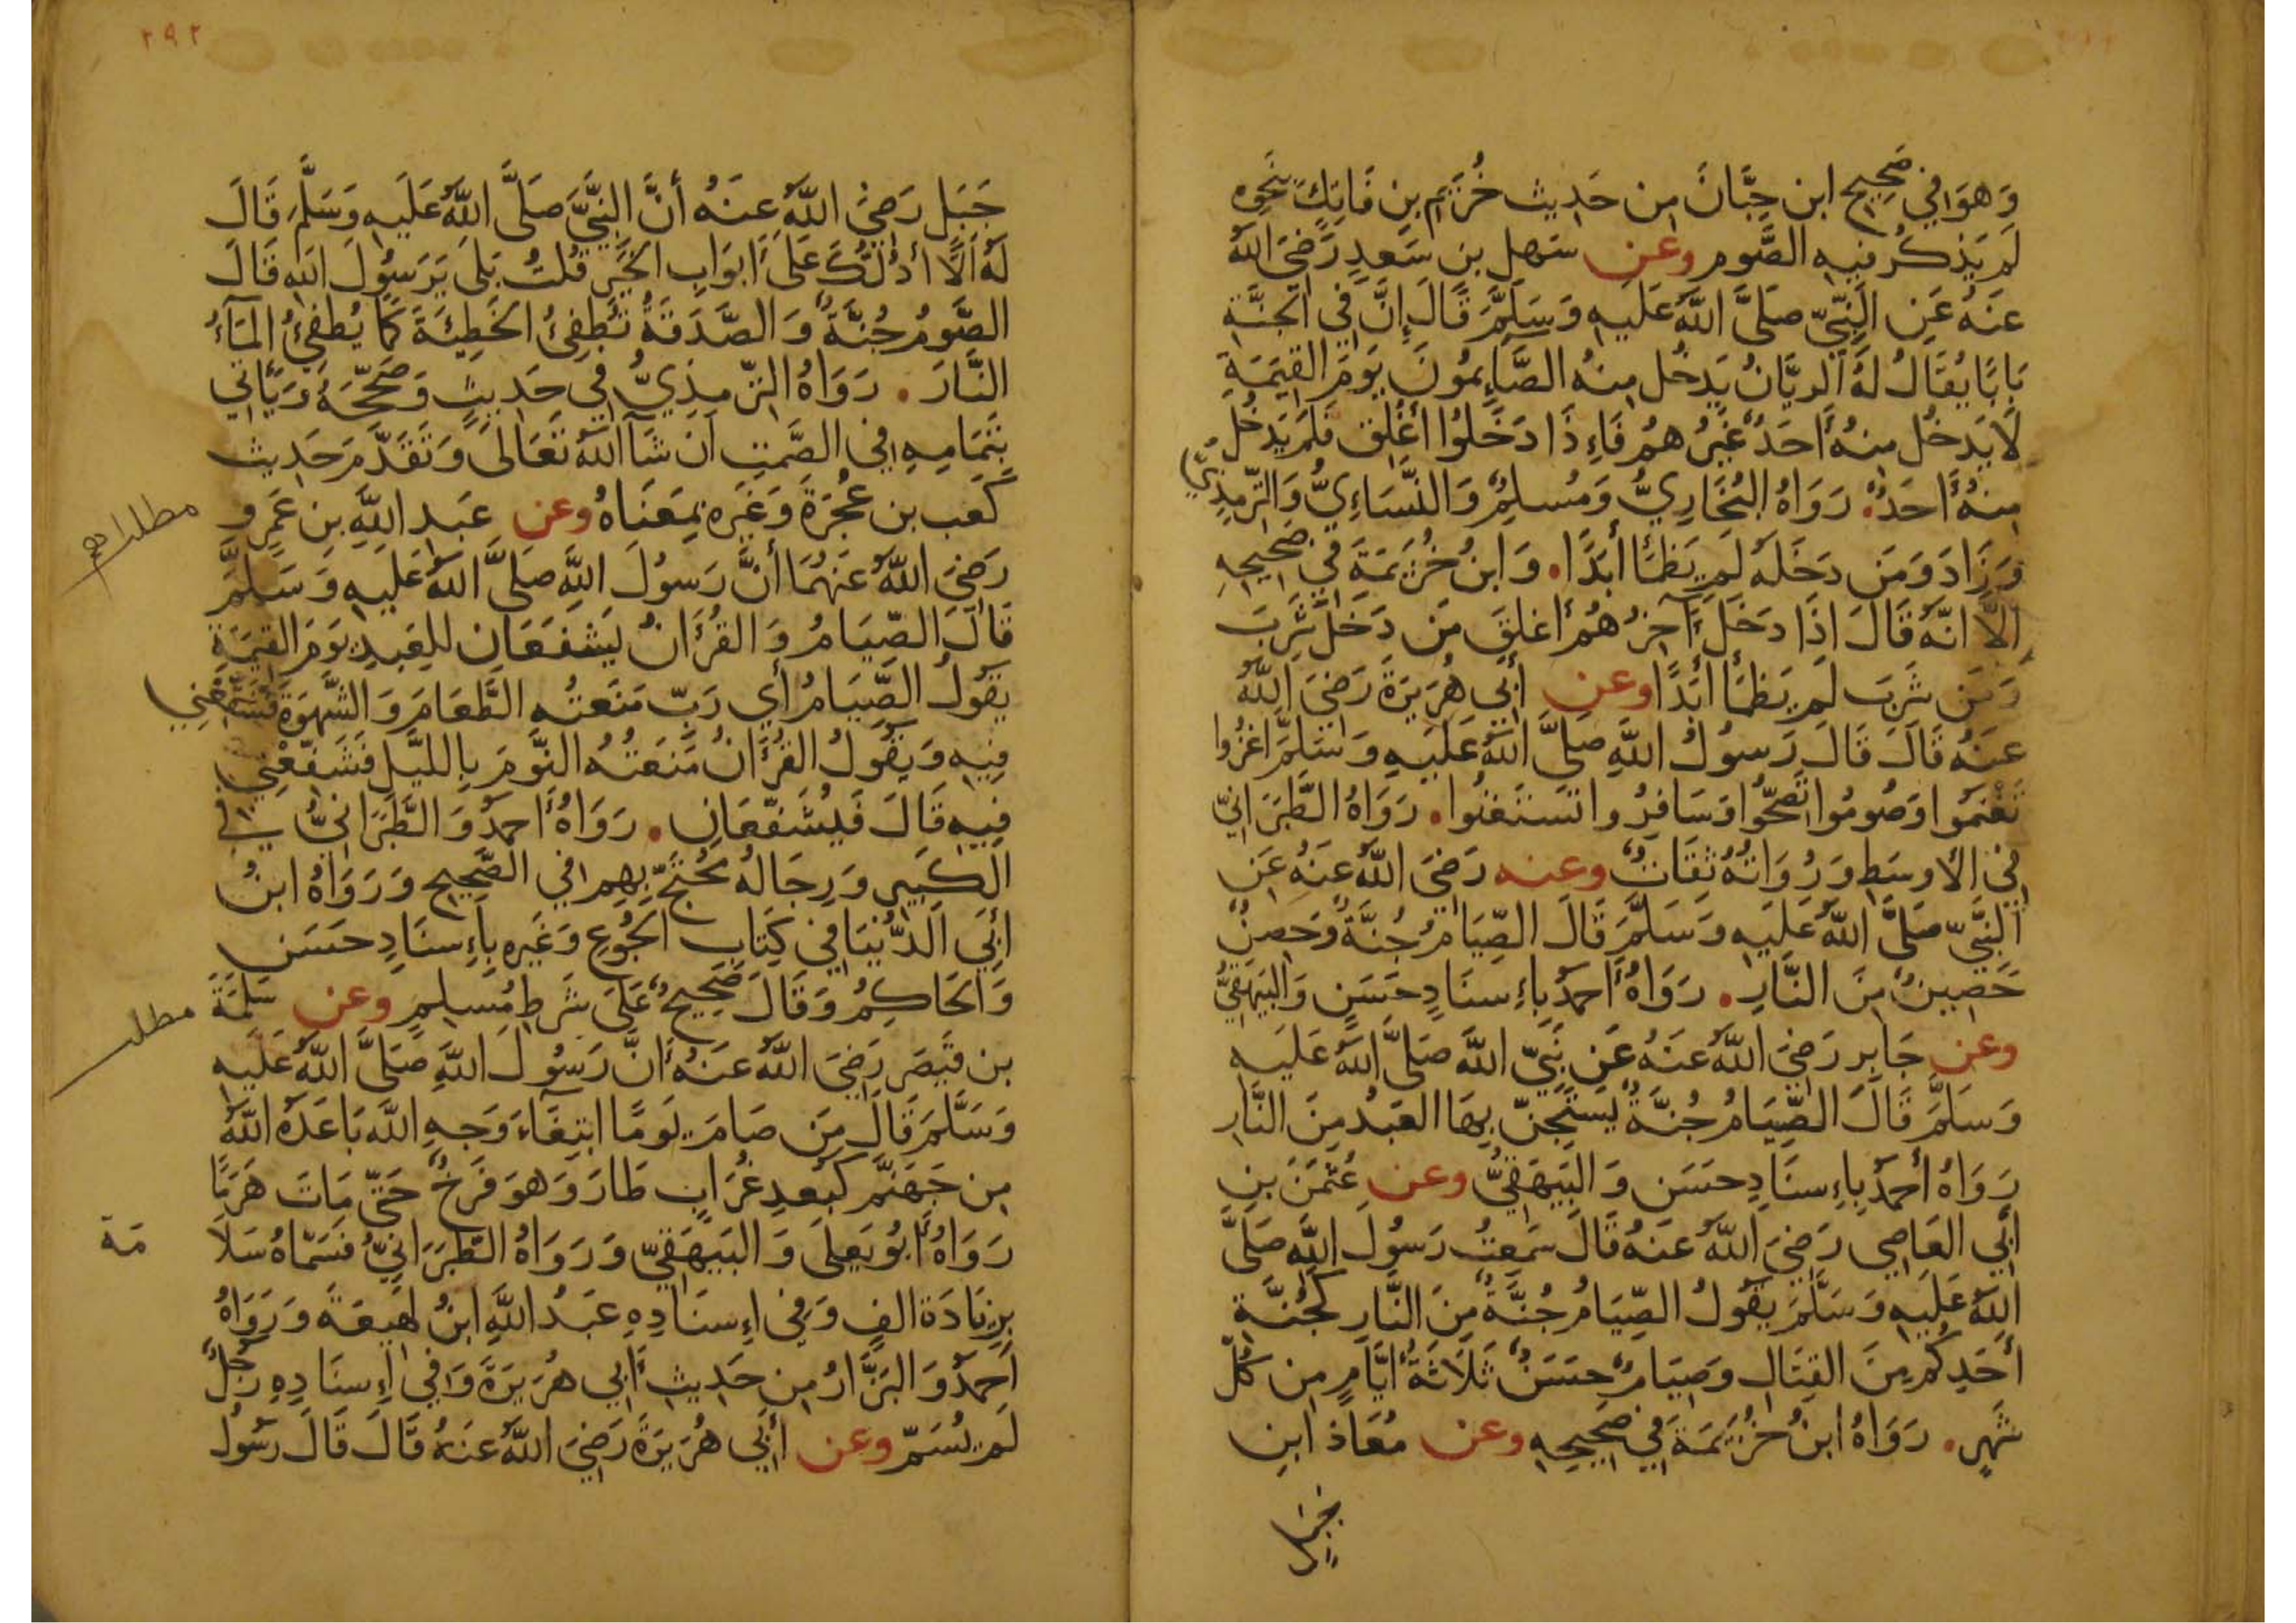 وَهوَ في صَحِيحِ ابن حِبَّانَ مِن حَدِيث خُرَيم بنِ فَاتِكٍ بَنحوِه
لَم يَذكُر فيهِ الصَّوم وعن سَهل بن سَعدٍ رَضيَ اللهُ
عَنهُ عَنِ النَّبيّ صَلَّى اللهُ عَلَيهِ وَسَلَّمَ قَالَ إِنَّ في الجَنَّةِ
بَابًا يُقَالُ لَهُ الريَّانُ يَدخُل مِنهُ الصَّائِمُونَ يَومَ القِيمَةِ
لَا يَدخُل مِنهُ أَحَدٌ غَيرُ هُم فَإِذَا دَخَلُوا أُغلِق فَلَم يَدخُل
مِنهُ أَحَدٌ. رَوَاهُ البُخَارِيُّ وَمُسلِمٌ وَالنَّسَاءِيُّ وَالتِّرمِذِيُّ
وَزَادَ وَمَن دَخَلَهُ لَم يَظمَأ أَبَدًا. وَابنُ خُزَيمَةَ في صَحِيحِهِ
الَّا انَّهُ قَالَ اذَا دَخَلَ آخِرُ هُم أُغلِقَ مَن دَخَلَ شَرِبَ
وَمَن شَرِبَ لَم يَظمَأ أَبَدًا وعن أَبي هُرَيرَةَ رَضيَ اللهُ
عَنهُ قَالَ قَالَ رَسولُ اللهِ صَلَّى اللهُ عَلَيهِ وَسَلَّمَ اغزُوا
تَغْنَمُوا وَصُومُوا تَصِحُّوا وَسَافِرُوا تَستَغنُوا. رَوَاهُ الطَّبَرَانِيّ
في الأوسَطِ وَرُوَاتُهُ ثِقَاتٌ وعنه رَضيَ اللهُ عَنهُ عَنِ
النَّبيّ صَلَّى اللهُ عَلَيهِ وَسَلَّمَ قَالَ الصِّيَامُ جُنَّةٌ وَحِصنٌ
حَصِينٌ مِنَ النَّارِ. رَوَاهُ أَحمَدُ بِإِسنَادٍ حَسَنٍ وَالبَيهَقِيُّ
وعن جَابِرٍ رَضيَ اللهُ عَنهُ عَن نَبيّ اللهِ صَلَّى اللهُ عَلَيهِ
وَسَلَّمَ قَالَ الصِّيَامُ جُنَّةٌ يَستَجِنّ بِهَا العَبدُ مِنَ النَّارِ
رَوَاهُ أَحمَدُ بِإِسنَادٍ حَسَن وَالبَيهَقِيُّ وعن عُثمَنَ بنِ
أَبي العَاصِي رَضيَ اللهُ عَنهُ قَالَ سَمِعتُ رَسُولَ اللهِ صَلَّى
اللهُ عَلَيهِ وَسَلَّمَ يَقُولُ الصِّيَامُ جُنَّةٌ مِنَ النَّارِ كَجُنَّةِ
أَحَدِكُم مِنَ القِتَالِ وَصِيَامٌ حَسَنٌ ثَلَاثَةُ أَيَّامٍ مِن كُلّ
شَهرٍ. رَوَاهُ ابنُ خُزَيمَةَ في صَحِيحِهِ وعن مُعَاذ ابنِ
جَبَل
٢٩٢
جَبَل رَضيَ اللهُ عَنهُ أَنَّ النَّبيَّ صَلَّى اللهُ عَلَيهِ وَسَلَّمَ قَالَ
لَهُ أَلَا أَدُلُّكَ عَلَى أَبوَابِ الخَيرِ قُلتُ بَلَى يَرَسُولَ اللهِ قَالَ
الصَّومُ جُنَّةٌ وَالصَّدَقَةُ تُطفِئُ الخَطِيئَةَ كَمَا يُطفِئُ المَآءُ
النَّارَ. رَوَاهُ التِّرمِذِيُّ في حَدِيثٍ وَصَحَّحَهُ وَيَأتي
بِتَمَامِهِ في الصَّمتِ ان شَآ اللهُ تَعَالَى وَتَقَدَّمَ حَدِيث
كَعب بن عُجرَةَ وَغَيرِه بِمَعنَاهُ وعن عَبد اللهِ بنِ عَمرٍو
رَضيَ اللهُ عَنهُمَا أَنَّ رَسُولَ اللهِ صَلَّى اللهُ عَلَيهِ وَسَلَّمَ
قَالَ الصِّيَامُ وَالقُرأَانُ يَشفَعَانِ لِلعَبدِ يَومَ القِيمَةِ
يَقُولُ الصِّيَامُ أَي رَبّ مَنَعتُهِ الطَّعَامَ وَالشَّهوَةَ فَشَفِّعْنِي
فِيهِ وَيَقُولُ القُرأَانُ مَنَعتُهُ النَّومَ بِاللَّيلِ فَشَفِّعْنِي
فِيهِ قَالَ فَيُشَفَّعَانِ. رَوَاهُ أَحمَدُ وَالطَّبَرَانيُّ في
الكَبِيرِ وَرِجَالُهُ مُحتَجّ بِهِم في الصَّحِيحِ وَرَوَاهُ ابنُ
أَبي الدُّنيَا في كِتَابِ الجُوعِ وَغَيرِه بِإِسنَادٍ حَسَنٍ
وَالحَاكِمُ وَقَالَ صَحِيحٌ عَلَى شَرطِ مُسلِمٍ وعن سَلَمَةَ
بن قَيصَر رَضيَ اللهُ عَنهُ أَنَّ رَسُولَ اللهِ صَلَّى اللهُ عَلَيهِ
وَسَلَّمَ قَالَ مَن صَامَ يَومًا ابتِغَاءَ وَجهِ اللهِ بَاعَدَهُ اللهُ
مِن جَهَنَّم كَبُعدِ غُرَابٍ طَارَ وَهوَ فَرخٌ حَتّى مَاتَ هَرَمًا
رَوَاهُ أَبُو يَعلَى وَالبَيهَقيّ وَرَوَاهُ الطَّبَرَانيُّ فَسَمَّاهُ سَلَا
مَة
بِزِيَادَة الفٍ وَفي إِسنَادِهِ عَبدُ اللهِ ابنُ لهِيعَةَ وَرَوَاهُ
أَحمَدُ وَالبَزَّارُ مِن حَدِيث أَبي هُرَيرَةَ وَفي إِسنَادِهِ رَجُلٌ
لَم يُسَمّ وعن أَبي هُرَيرَةَ رَضيَ اللهُ عَنهُ قَالَ قَالَ رَسُولُ
مطلب